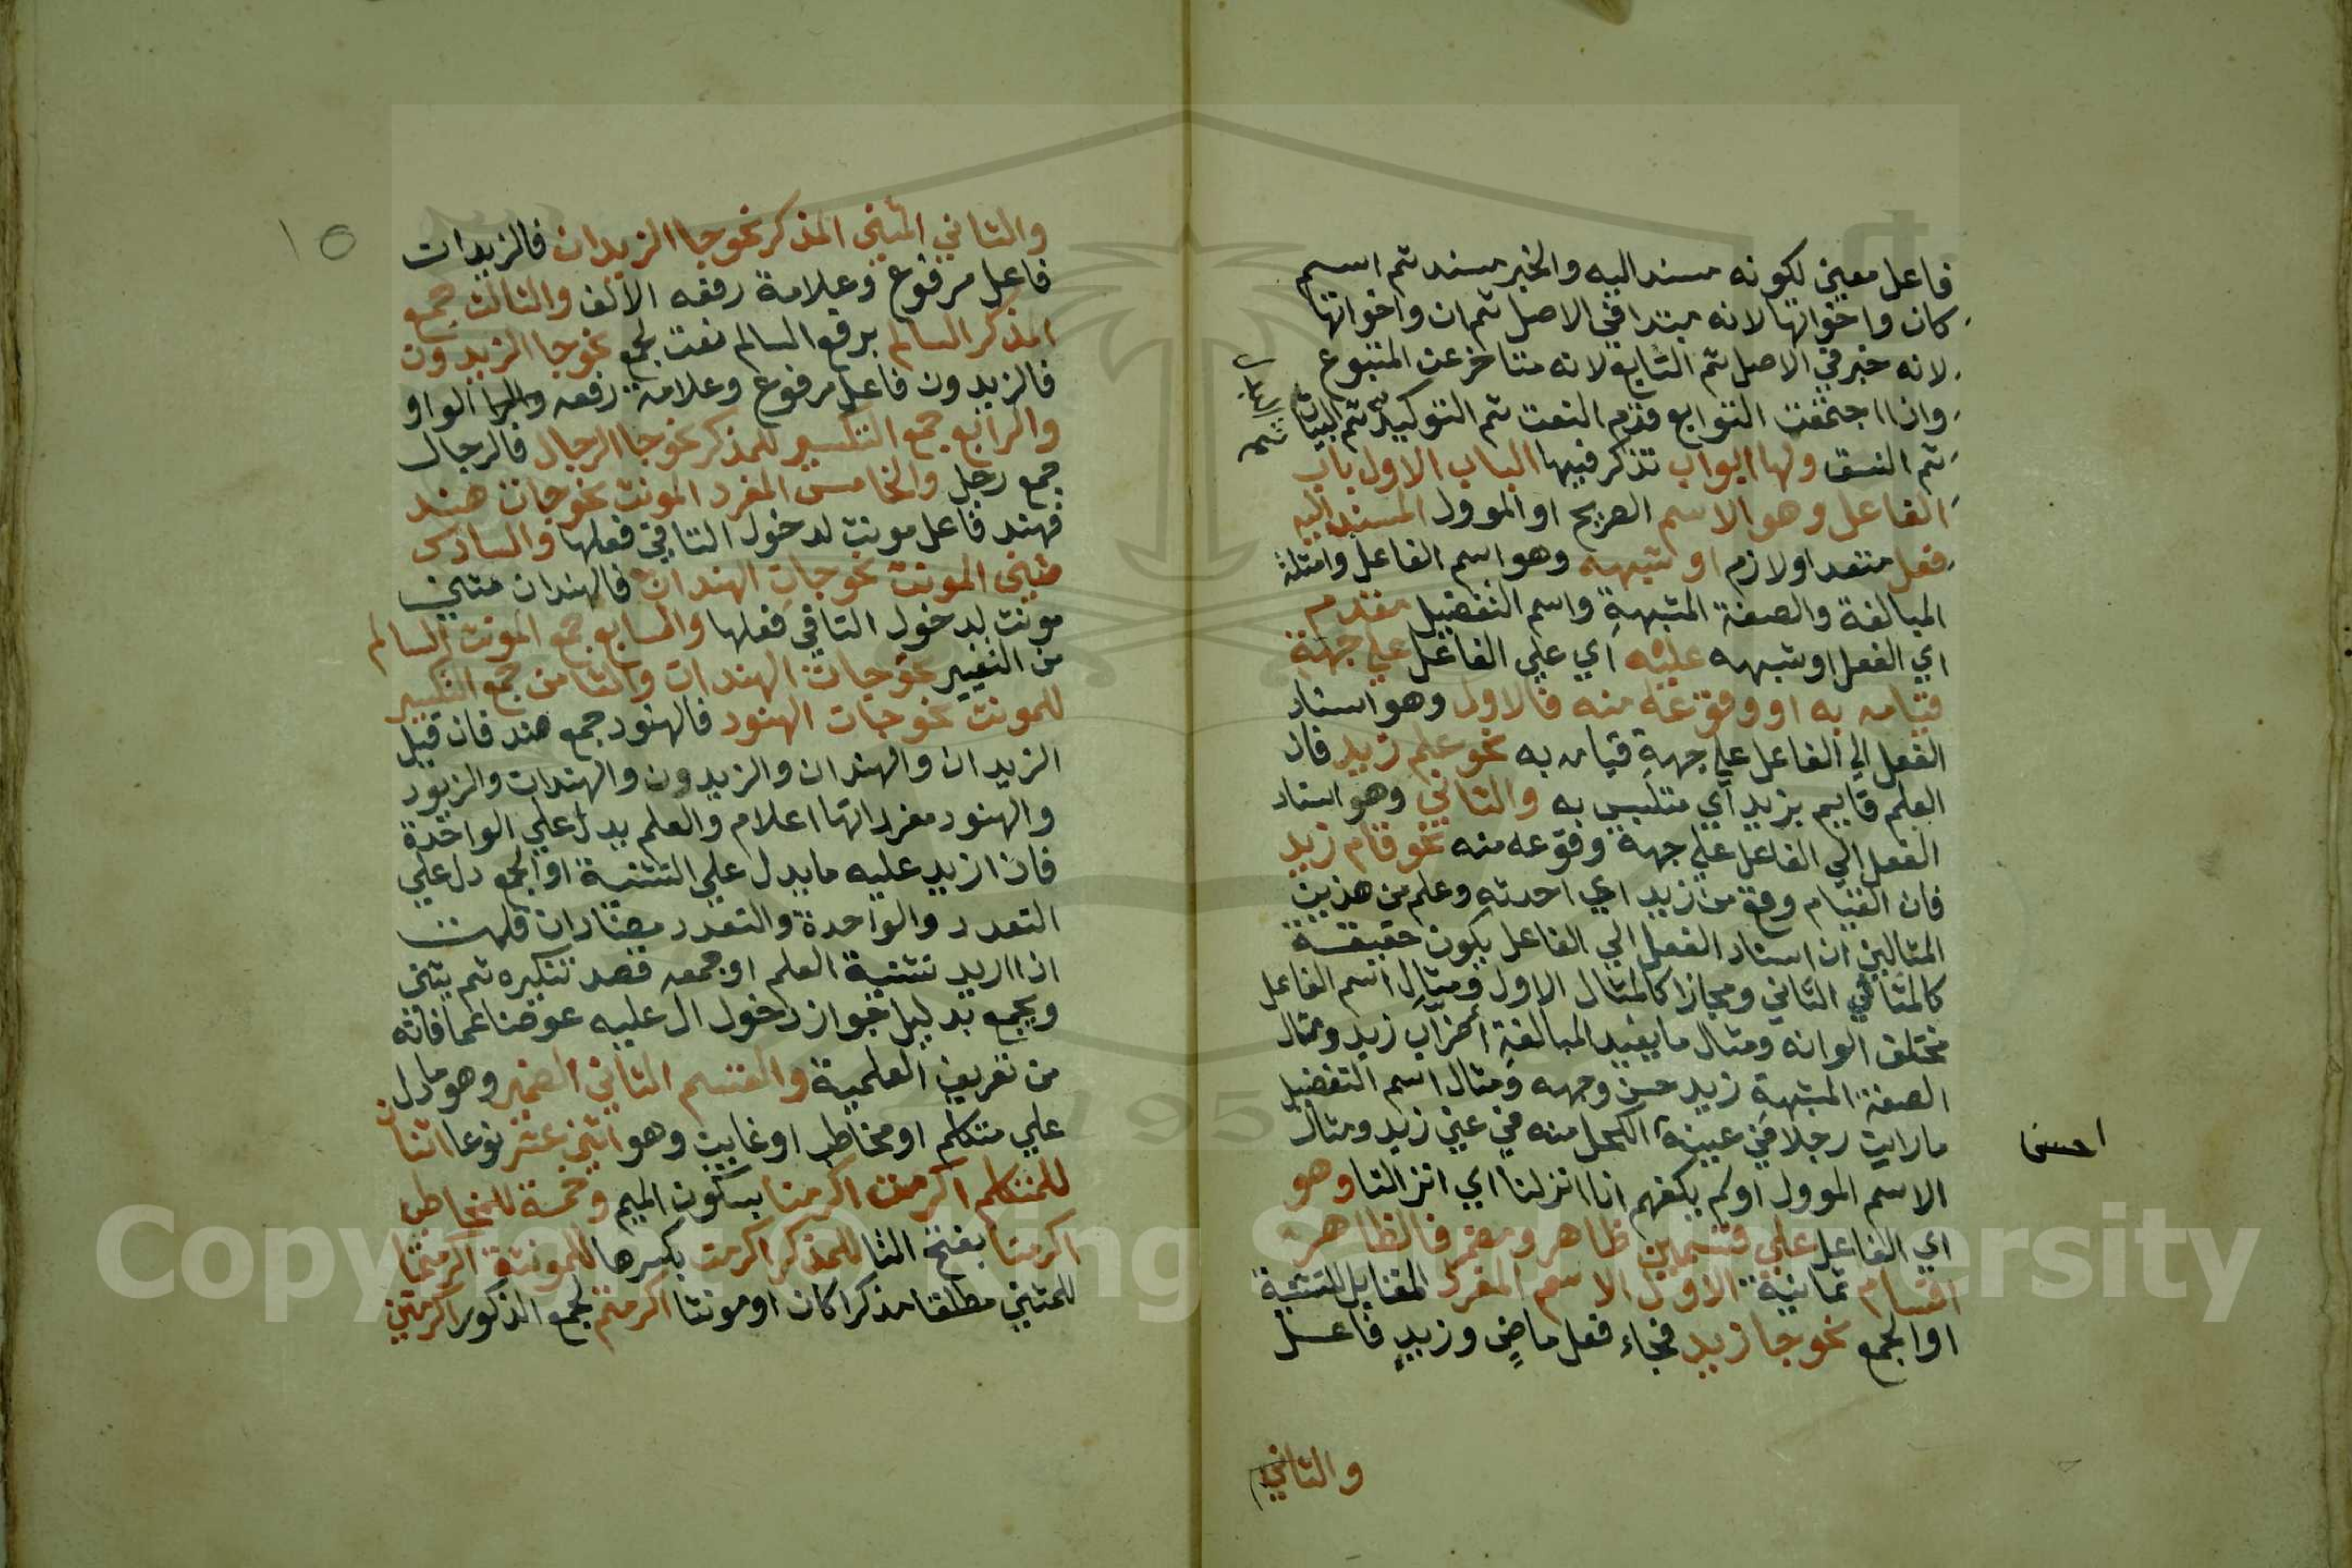 فاعل معني لكونه مسند اليه والخبر مسند ثم اسم
كان واخواتها لانه مبتدا في الاصل ثم ان واخواتها
لانه خبر في الاصل ثم التابع لانه متاخر عن المتبوع
واذا اجتمعت التوابع قدم النعت ثم التوكيد ثم البيان
ثم البدل
ثم النسق ولها ابواب تذكر فيها الباب الاول باب
الفاعل وهو الاسم الصريح او الموول المسند اليه
فعل متعد او لازم او شبهه وهو اسم الفاعل وامثلة
المبالغة والصفة المشبهة واسم التفضيل مقدم
اي الفعل او شبهه عليه اي علي الفاعل علي جهة
قيامه به او وقوعه منه فالاول وهو اسناد
الفعل الي الفاعل علي جهة قيامه به نحو علم زيد فان
العلم قايم بزيد اي متلبس به والثاني وهو اسناد
الفعل الي الفاعل علي جهة وقوعه منه نحو قام زيد
فان القيام وقع من زيد اي احدثه وعلم من هذين
المثالين ان اسناد الفعل الي الفاعل يكون حقيقة
كالمثال الثاني ومجازا كالمثال الاول ومثال اسم الفاعل
مختلف الوانه ومثال ما يفيد المبالغة اضراب زيد ومثال
الصفة المشبهة زيد حسن وجهه ومثال اسم التفضيل
ما رايت رجلا في عينه الكحل منه في عين زيد ومثال
احسن
الاسم الموول اولم يكفهم انا انزلنا اي انزالنا وهو
اي الفاعل علي قسمين ظاهر ومضمر فالظاهر
اقسام ثمانية الاول الاسم المفرد المقابل للتثنية
او الجمع نحو جا زيد فجاء فعل ماض وزيد فاعل
والثاني
١٥
والثاني المثني المذكر نحو جا الزيدان فالزيدان
فاعل مرفوع وعلامة رفعه الالف والثالث جمع
المذكر السالم برفع السالم نعت لجمع نحو جا الزيدون
فالزيدون فاعل مرفوع وعلامة رفعه الواو
والرابع جمع التكسير للمذكر نحو جا الرجال فالرجال
جمع رجل والخامس المفرد المونث نحو جات هند
فهند فاعل مونث لدخول التا في فعلها والسادس
مثني المونث نحو جات الهندان فالهندان مثني
مونث لدخول التا في فعلها والسابع جمع المونث السالم
من التغيير نحو جات الهندات والثامن جمع التكسير
للمونث نحو جات الهنود فالهنود جمع هند فان قيل
الزيدان والهندان والزيدون والهندات والزيود
والهنود مفرداتها اعلام والعلم يدل علي الواحدة
فاذا زيد عليه ما يدل علي التثنية او الجمع دل علي
التعدد والواحدة والتعدد مضادان قلت
اذا اريد تثنية العلم او جمعه قصد تنكيره ثم يثني
ويجمع بدليل جواز دخول ال عليه عوضا عما فاته
من تعريف العلمية والقسم الثاني الضمير وهو ما دل
علي متكلم او مخاطب او غايب وهو اثني عشر نوعا اثنان
للمتكلم اكرمت اكرمنا بسكون الميم وخمسة للمخاطب
اكرمت بفتح التا للمذكر اكرمت بكسرها للمونثة اكرمتما
للمثني مطلقا مذكرا كان او مونثا اكرمتم لجمع الذكور اكرمتن
Copyright © King Saud University